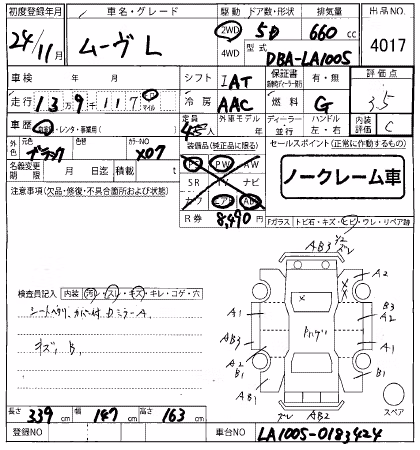 初度登録年月 車名・グレード 駆動 ドア数・形状 排気量 出品NO.
24/11月 ムーヴ L 2WD 5D 660cc 4017
4WD 型式 DBA-LA100S
車検 年 月 シフト IAT 保証書 有・無 評価点
走行 13万9千117 km マイル 冷房 AAC 燃料 G 3.5
車歴 自家用・レンタ・事業用 定員 4人 外車モデル 年 ディーラー 並行 ハンドル 左・右 内装評価 C
外色 元色 ブラック 色替 カラーNO X07 装備品(純正品に限る) セールスポイント(正常に作動するもの)
名義変更期限 月 日迄 積載 t PS PW ノークレーム車
注意事項(欠品・修復・不具合箇所および状態) SR TV ナビ
カワ エアB AW
R券 8,490円 Fガラス トビ石・キズ・ヒビ・ワレ・リペア跡
AB3
A2
検査員記入 内装 汚レ・スレ・キズ・キレ・コゲ・穴
シートヘタリ、カバー付 DミラーA、
キズ、B、
A1 B3 A2
AB3 A1
A2 B1 A2
AB1 B1
ズレ AB2 スペア
長さ 339cm 幅 147cm 高さ 163cm
登録NO 車台NO LA100S-0183424